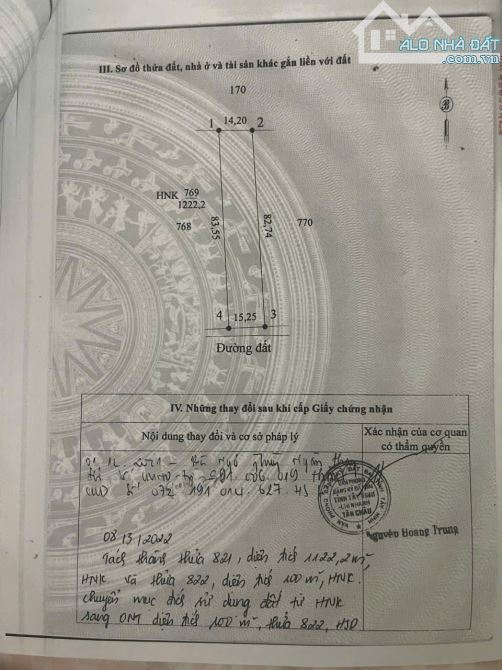 ALO NHÀ ĐẤT
.com.vn
III. Sơ đồ thửa đất, nhà ở và tài sản khác gắn liền với đất
170
1 14,20 2
HNK 769
1222,2
768
83,55
82,74
770
4 15,25 3
Đường đất
IV. Những thay đổi sau khi cấp Giấy chứng nhận
Nội dung thay đổi và cơ sở pháp lý
Xác nhận của cơ quan có thẩm quyền
TỈNH TÂY NINH
CHI NHÁNH
TÂN CHÂU
Nguyễn Hoàng Trung
08/3/2022
Tách thành thửa 821, diện tích 1122,2 m²,
HNK và thửa 822, diện tích 100 m², HNK.
chuyển mục đích sử dụng đất từ HNK
sang ONT diện tích 100 m², thửa 822,